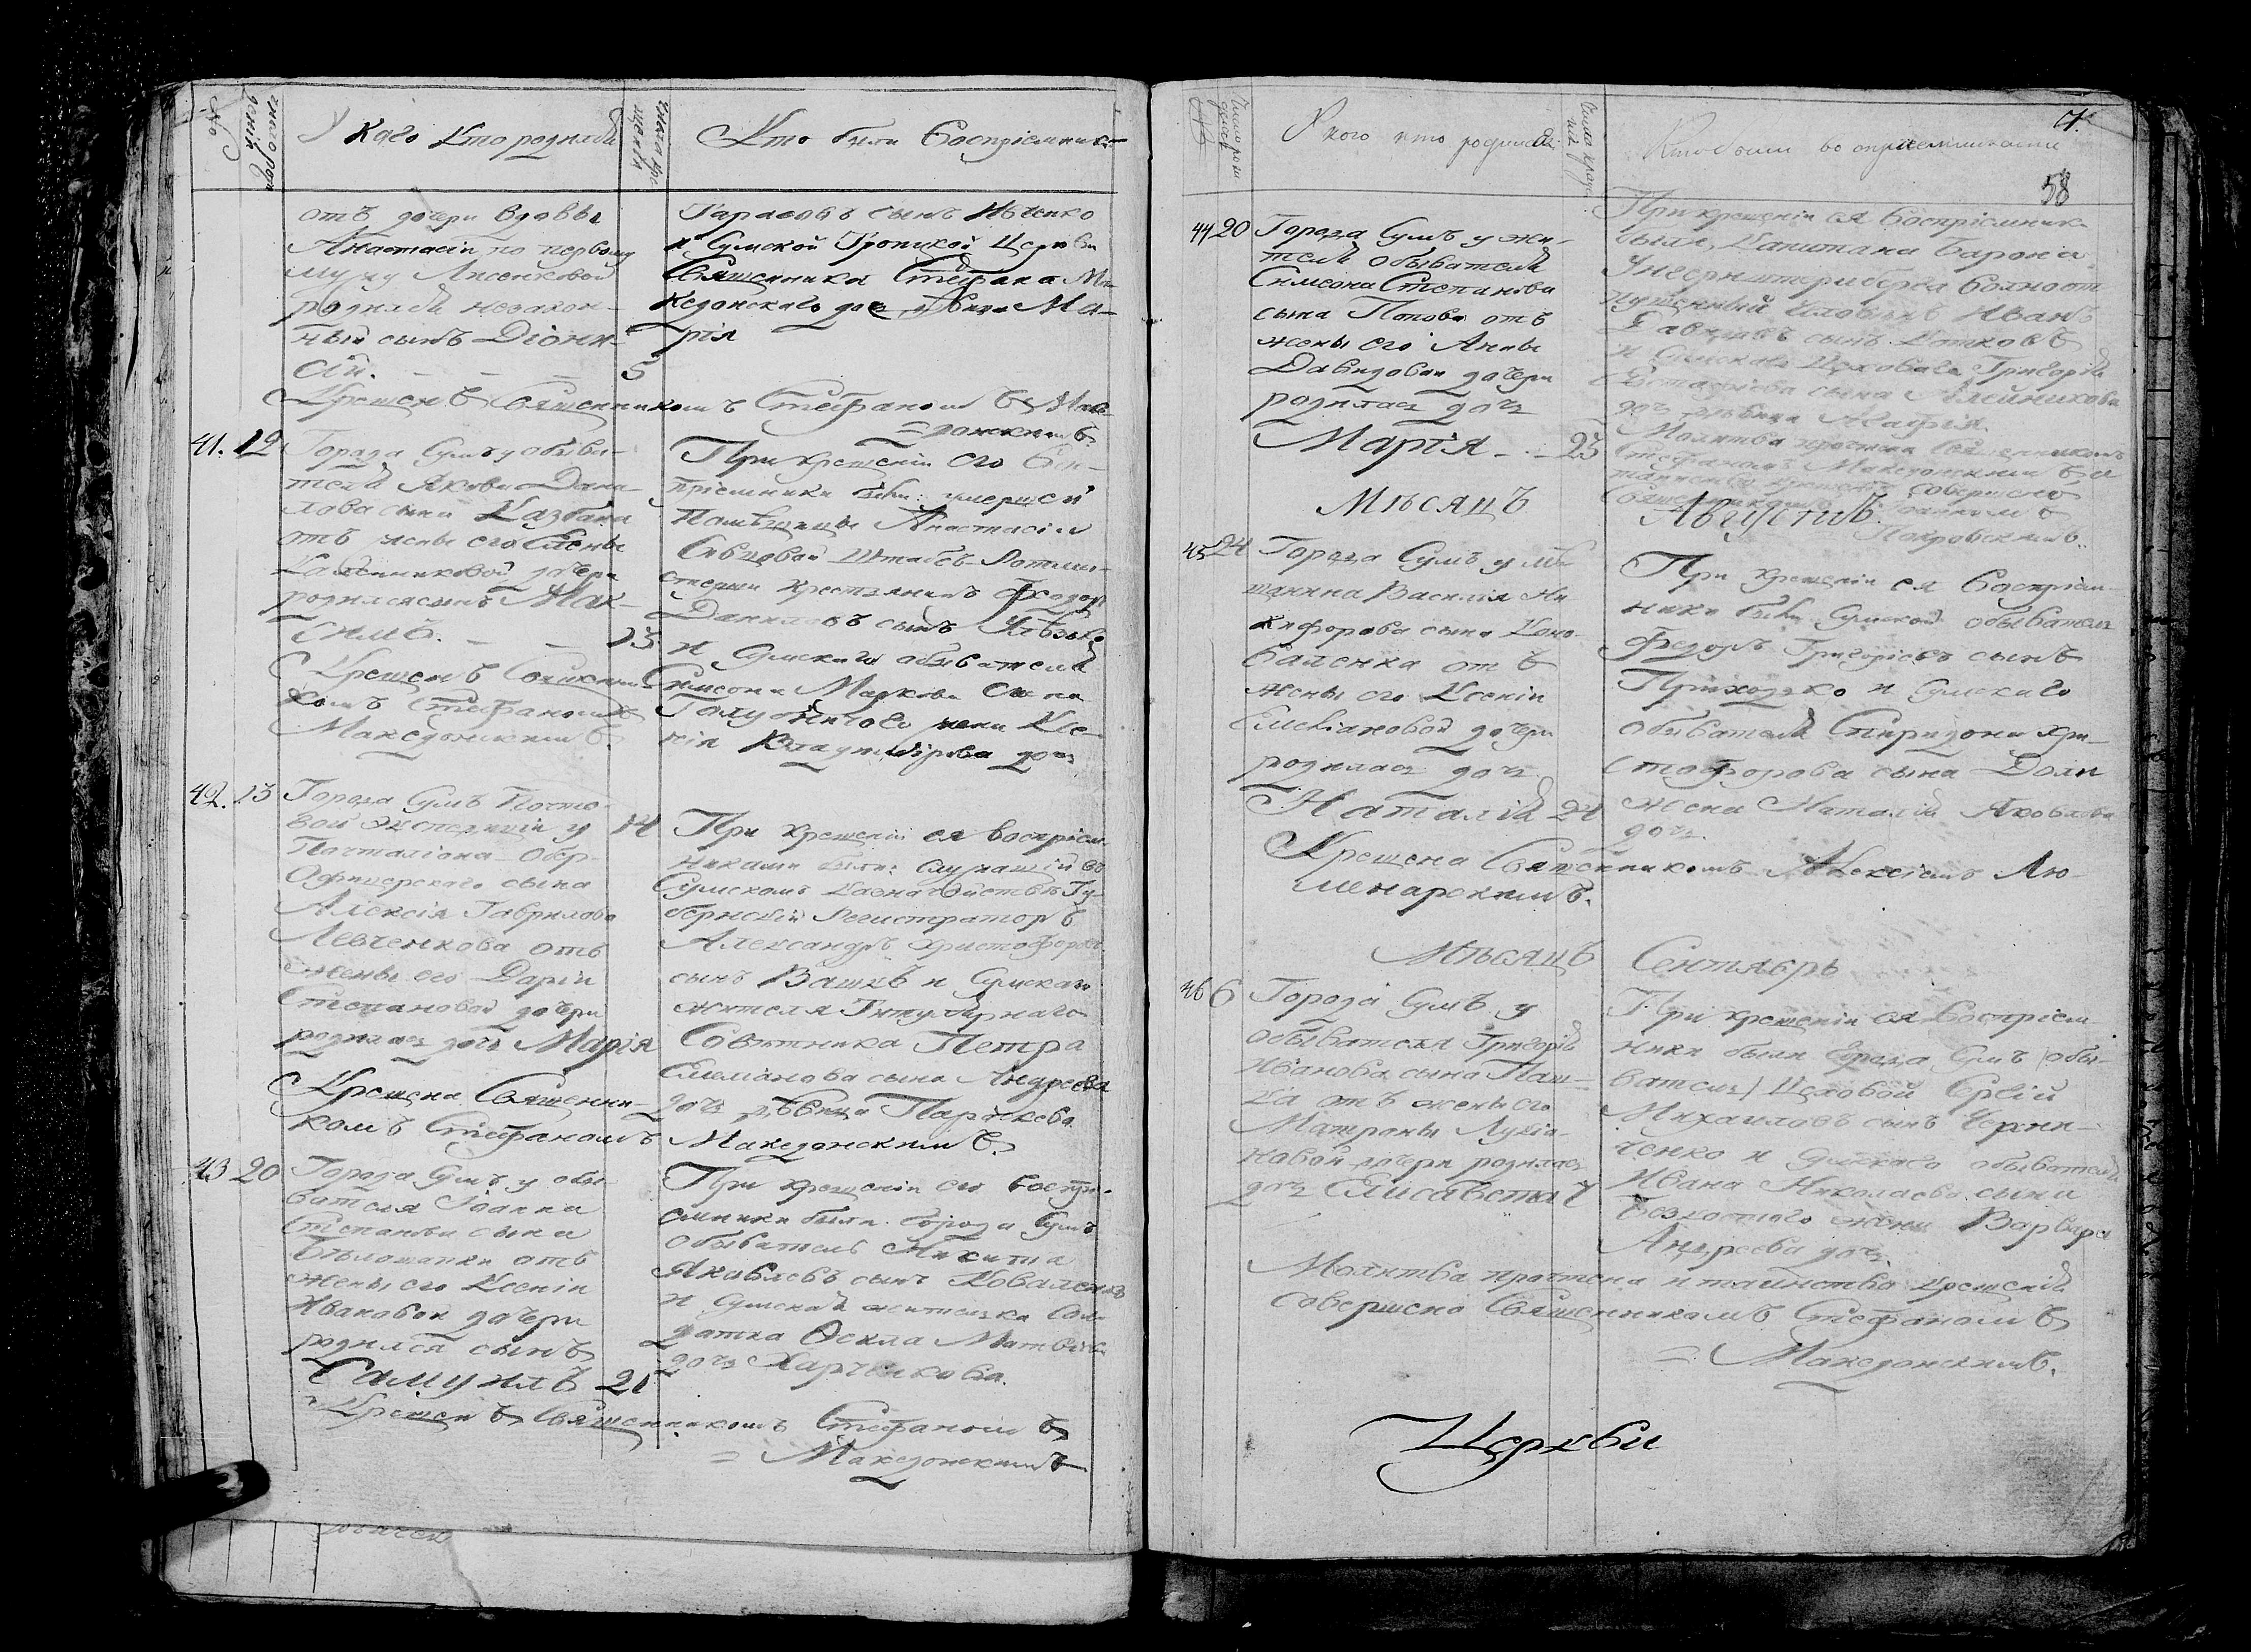 №
Число рождения
У Кого Кто родился
Число крещения
Кто были Восприемники
отъ дочери вдовы
Анастасіи по первому
мужу Лисенковой
родился незакон-
ный сынъ Діони-
сій. — — — 5
Тарасовъ сынъ Ивченко
и Сумской Троицкой Церкви
Священника Стефана Ма-
кедонскаго дочь девица Ма-
рія
Крещенъ Священникомъ Стефаномъ Маке-
=донскимъ.
41. 12
Города Сумъ у обыва-
теля Якова Дани-
лова сына Казбана
отъ жены его Елены
дочери
родился сынъ Мак-
симъ. — — 13
Крещенъ Священни-
комъ Стефаномъ
Македонскимъ.
При крещеніи его Вос-
пріемники были: умершей
Помѣщицы Анастасіи
Штабсъ-Ротми-
стерши крестьянинъ Федоръ
Даниловъ сынъ
и Сумскаго обывателя
Симеона Маркова сына
жена Ксе-
нія дочь
42. 13
Города Сумъ Почто-
вой Экспедиціи у 14
Почталіона Обер-
Офицерскаго сына
Алексія Гаврилова
Левченкова отъ
жены его Даріи
Степановой дочери
родилась дочь Марія
При крещеніи ея воспріем-
никами были: служащій въ
Сумскомъ Казначействѣ Гу-
бернскій Регистраторъ
Александръ Христофоровъ
сынъ Вашкъ и Сумскаго
жителя Титулярнаго
Совѣтника Петра
Емеліанова сына Андреева
дочь дѣвица Параскева
Крещена Священни-
комъ Стефаномъ Македонскимъ.
43 20
Города Сумъ у обы-
вателя Іоанна
Степанова сына
Бѣлошапки отъ
жены его Ксеніи
Ивановой дочери
родился сынъ
Самуилъ 21
При крещеніи его воспрі-
емники были. Города Сумъ
Обыватель Никита
Яковлевъ сынъ Коваленко
и Сумская жителька Сол-
датка Фекла Матвѣева
дочь Харченкова.
Крещенъ Священникомъ Стефаномъ
= Македонскимъ
7.
58
№
Число рожденія
У кого кто родился
Числа крещенія
Кто были воспріемниками
44 20
Города Сумъ у жи-
теля обывателя
Симеона Степанова
сына Попова отъ
жены его Анны
Давидовой дочери
родилась дочь
Марія — 23
При крещеніи ея Воспріемники
были, Капитана Барона
Унгернштернберга
человѣкъ Иванъ
сынъ
и Сумскаго Цеховаго Григорія
Евстафіева сына Алейникова
дочь дѣвица
Молитва прочтена Священникомъ
Стефаномъ Македонскимъ, а
таинство крещенія совершено
Священникомъ
Покровскимъ.
Мѣсяцъ Августъ.
45 24
Города Сумъ у мѣ-
щанина Василія Ни-
кифорова сына Коно-
валенка отъ
жены его Ксеніи
Емеліановой дочери
родилась дочь
Наталія 24
При крещеніи ея Воспріем-
ники были Сумской обыватель
Федоръ Григоріевъ сынъ
Приходько и Сумскаго
обывателя Спиридона Хри-
стофорова сына Доли
жена Наталія Яковлева
дочь.
Крещена Священникомъ Алексіемъ Лю-
менарскимъ.
Мѣсяцъ Сентябрь
46 6
Города Сумъ у
обывателя Григорія
Иванова сына Паш-
ка отъ жены его
Матроны Лукіа-
новой дочери родилась
дочь Елисавета 7
При крещеніи ея Воспріем-
ники были города Сумъ (обы-
ватель) Цеховой Сергій
Михаиловъ сынъ Черни-
ченко и Сумскаго обывателя
Ивана Николаева сына
Безкостаго жена Варвара
Андреева дочь.
Молитва прочтена и таинство крещенія
совершено Священникомъ Стефаномъ
= Македонскимъ.
Церкви